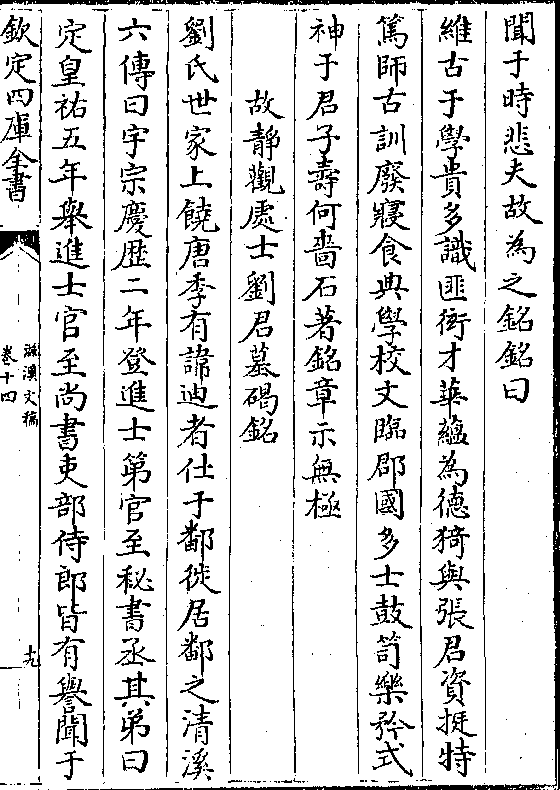 聞于時悲夫故為之銘銘曰
維古于學貴多識匪衒才華蘊為德猗與張君資挺特
篤師古訓廢寢食典學校文臨郡國多士鼓笥樂矜式
神于君子壽何嗇石著銘章示無極
故靜觀處士劉君墓碣銘
劉氏世家上饒唐季有諱迪者仕于鄱徙居鄱之清溪
六傳曰宇宗慶歴二年登進士第官至秘書丞其弟曰
定皇祐五年舉進士官至尚書吏部侍郎皆有譽聞于
欽定四庫全書
文稿
卷十四
九